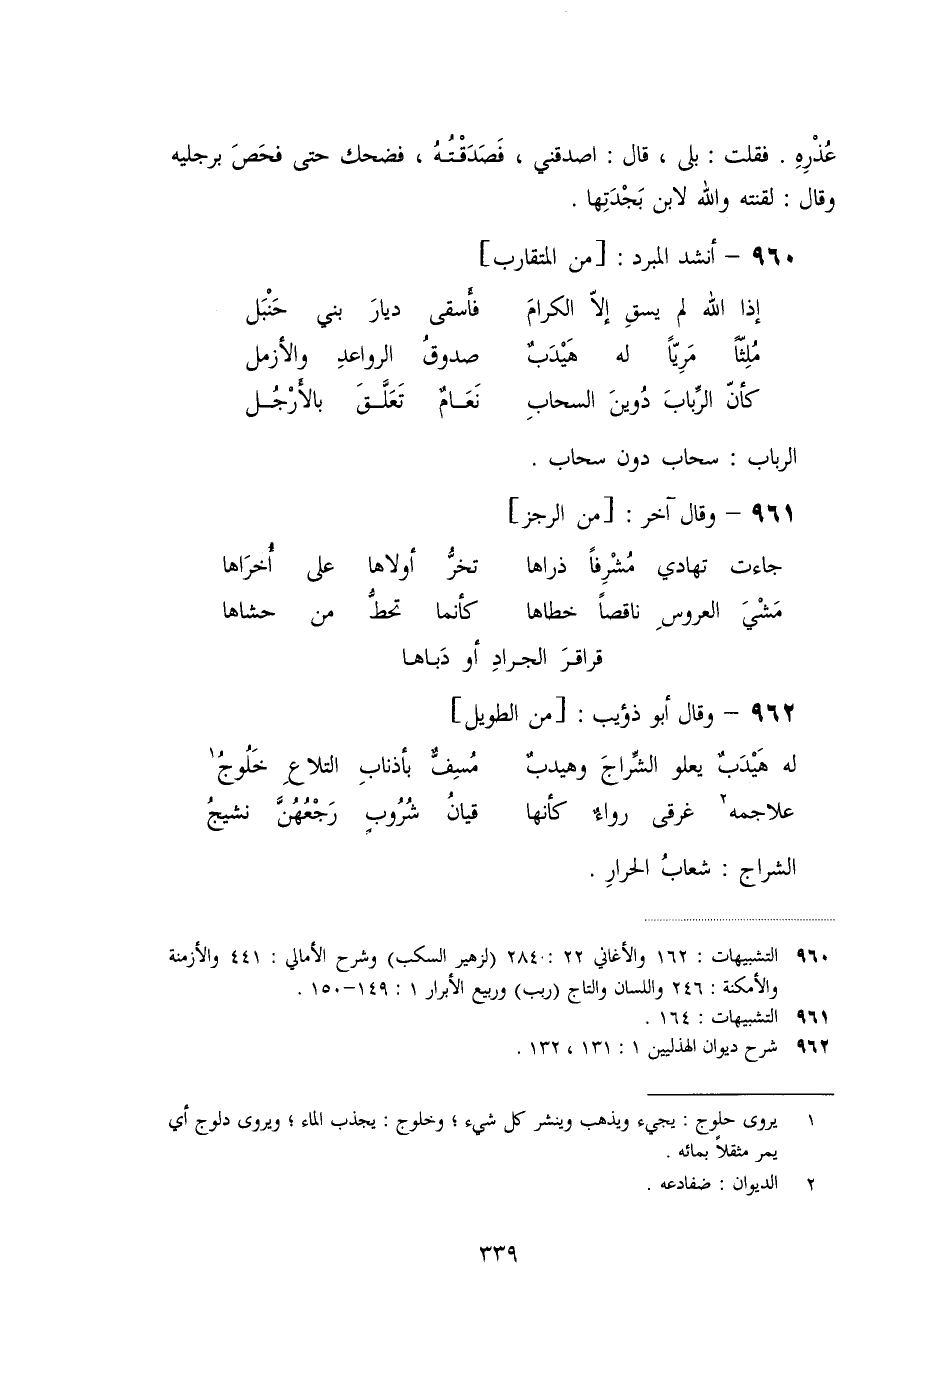 عُذْرِهِ . فقلت : بلى ، قال : اصدقني ، فَصَدَقْتُهُ ، فضحك حتى فحَصَ برجليه
وقال : لقنته والله لابن بَجْدَتِها .
٩٦٠ – أنشد المبرد : [من المتقارب]
إذا الله لم يسقِ إلاّ الكرامَ فأَسقى ديارَ بني حَنْبَل
مُلِثّاً مَرِيّاً له هَيْدَبٌ صدوقُ الرواعدِ والأزمل
كأنّ الرِّبابَ دُوينَ السحابِ نَعَامٌ تَعَلَّقَ بالأَرْجُل
الرباب : سحاب دون سحاب .
٩٦١ – وقال آخر : [من الرجز]
جاءت تهادي مُشْرِفاً ذراها تخرُّ أولاها على أُخرَاها
مَشْيَ العروسِ ناقصاً خطاها كأنما تحطُّ من حشاها
قراقرَ الجرادِ أو دَباها
٩٦٢ – وقال أبو ذؤيب : [من الطويل]
له هَيْدَبٌ يعلو الشِّراجَ وهيدبٌ مُسِفٌّ بأذنابِ التلاعِ خَلُوجُ١
علاجمه٢ غرقى رواءٌ كأنها قيانُ شُرُوبٍ رَجْعُهُنَّ نشيجُ
الشراج : شعابُ الحرارِ .
٩٦٠ التشبيهات : ١٦٢ والأغاني ٢٢ : ٢٨٤ (لزهير السكب) وشرح الأمالي : ٤٤١ والأزمنة
والأمكنة : ٢٤٦ واللسان والتاج (ربب) وربيع الأبرار ١ : ١٤٩–١٥٠ .
٩٦١ التشبيهات : ١٦٤ .
٩٦٢ شرح ديوان الهذليين ١ : ١٣١ ، ١٣٢ .
١ يروى حلوج : يجيء ويذهب وينشر كل شيء ؛ وخلوج : يجذب الماء ؛ ويروى دلوج أي
يمر مثقلاً بمائه .
٢ الديوان : ضفادعه .
٣٣٩